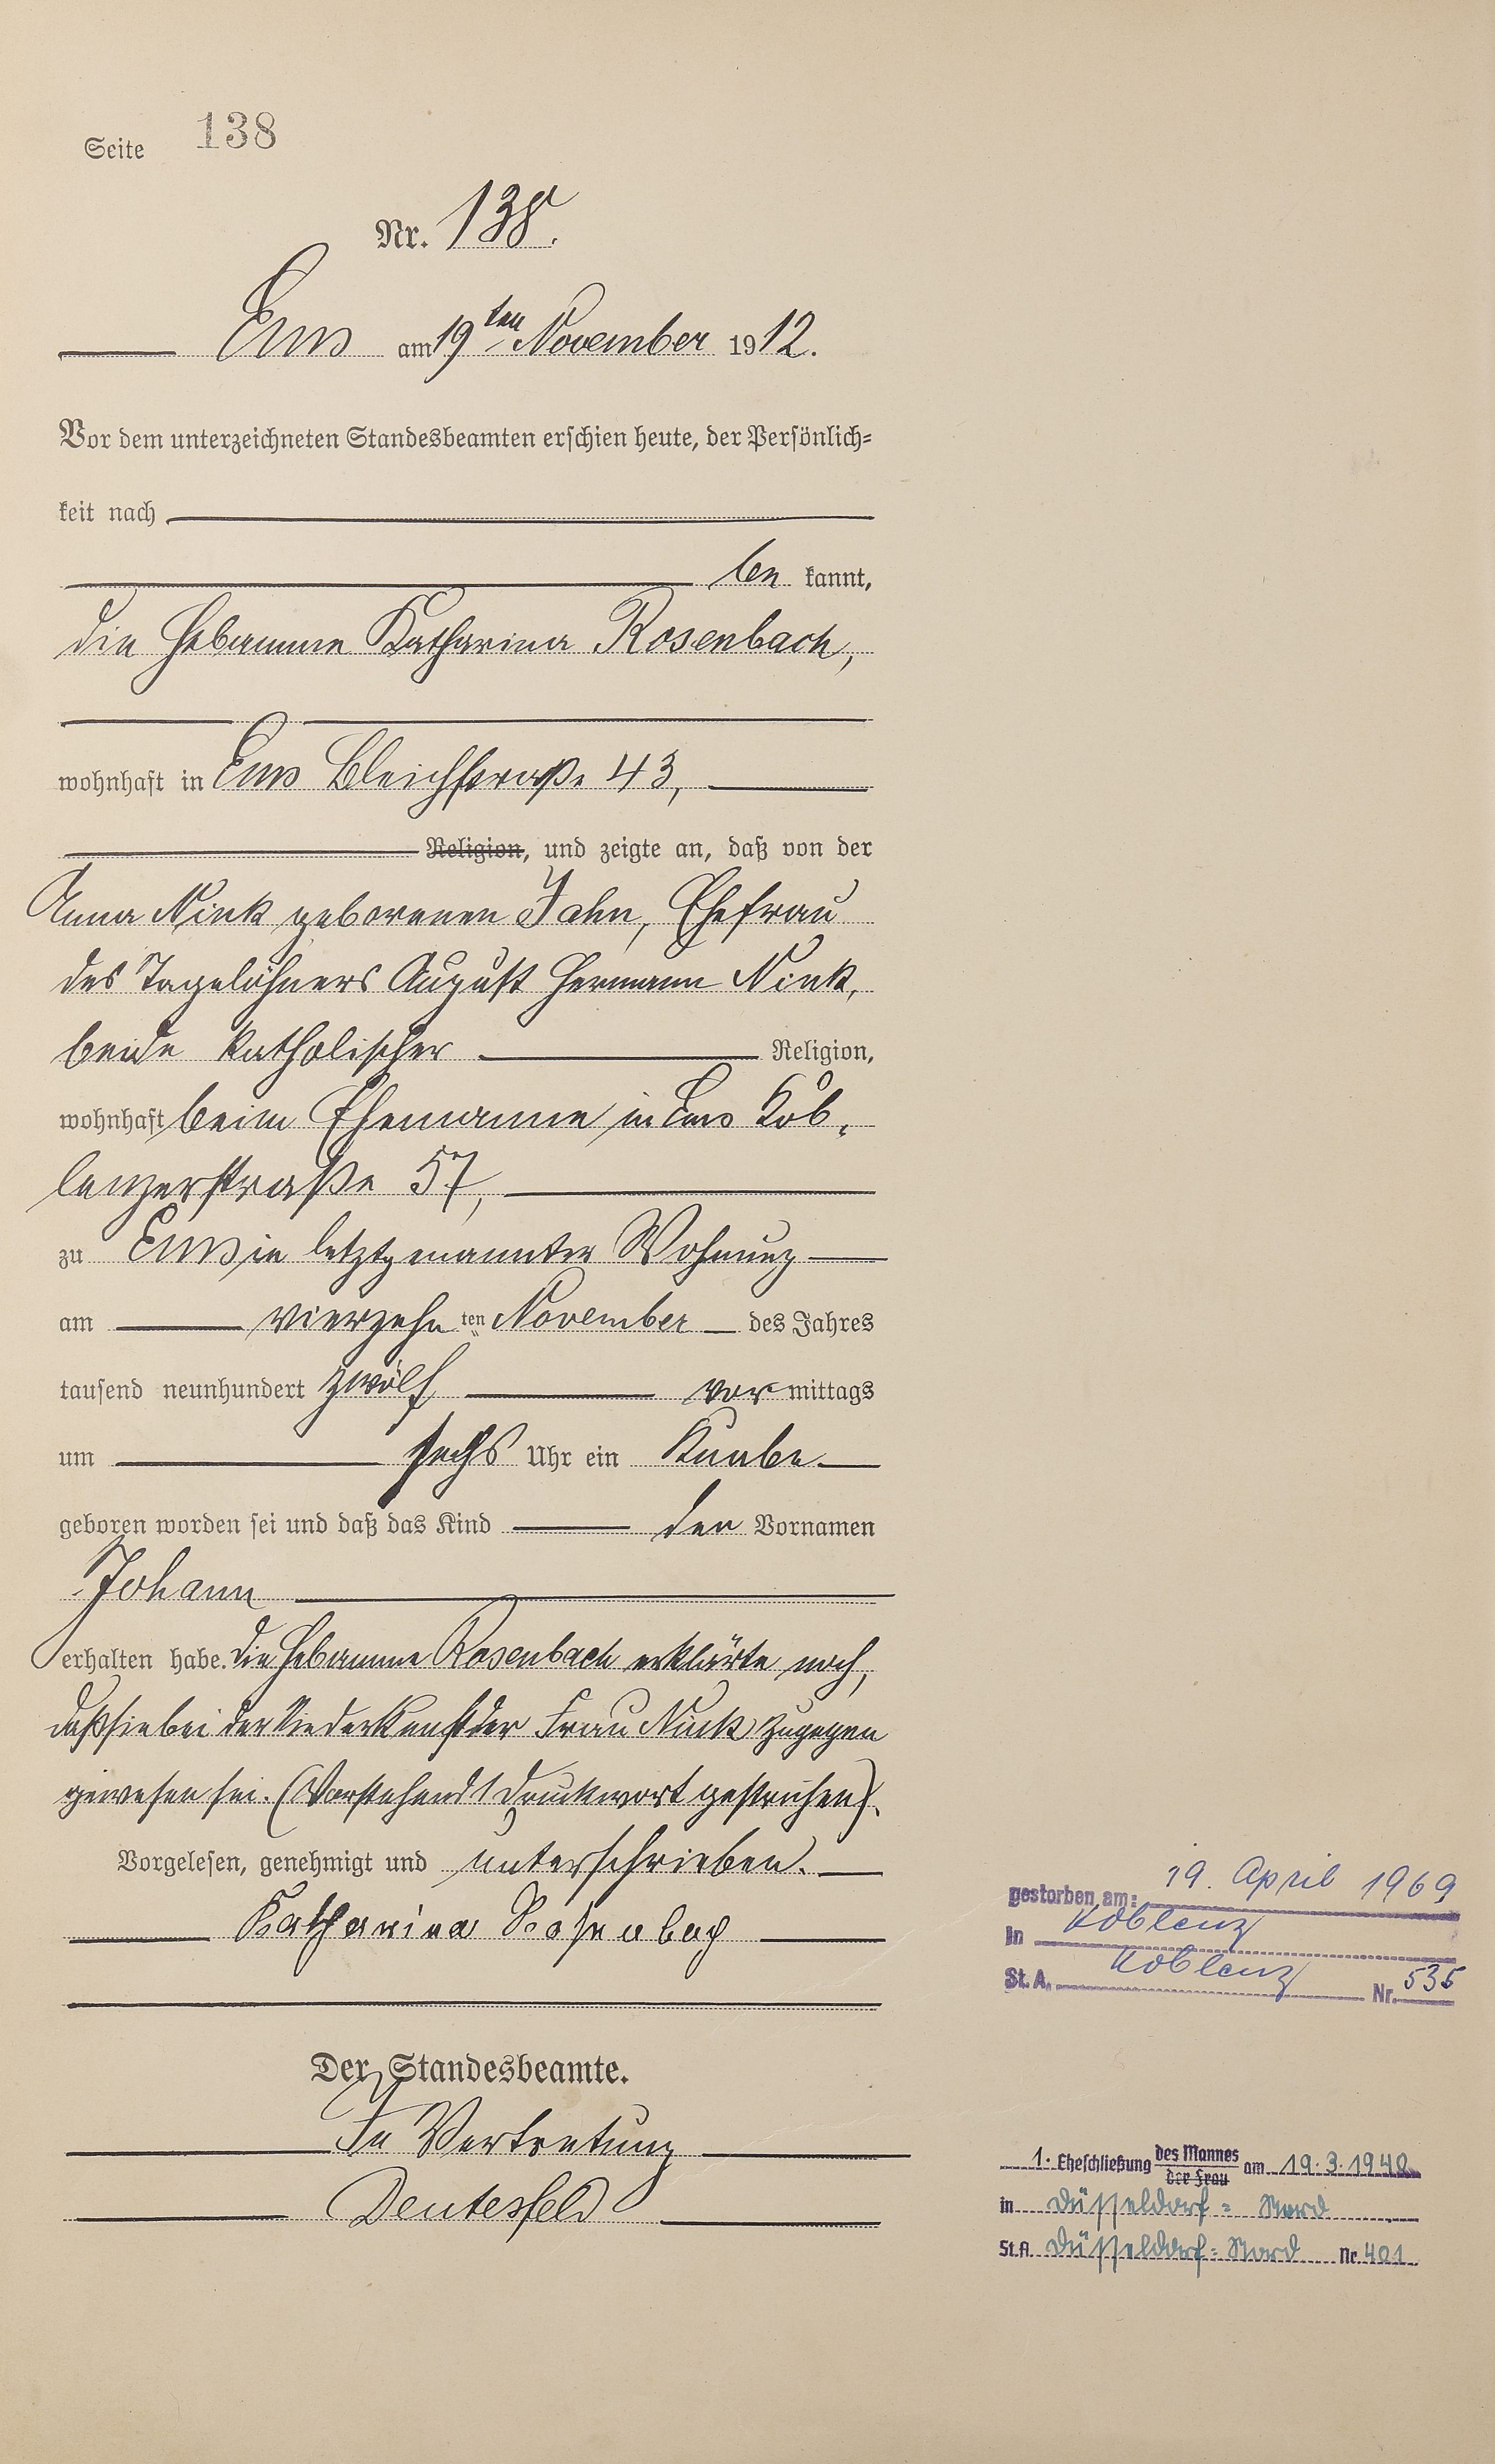 Seite 138
Nr. 138.
Ems am 19ten November 1912.
Vor dem unterzeichneten Standesbeamten erschien heute, der Persönlich-
keit nach
be kannt,
die Hebamme Katharina Rosenbach,
wohnhaft in Ems Bleichstraße 43,
Religion, und zeigte an, daß von der
Anna Nink geborenen Jahn, Ehefrau
des Tagelöhners August Hermann Nink,
beide katholischer Religion,
wohnhaft beim Ehemanne in Ems Kob-
lenzerstraße 57,
zu Ems in letztgenannter Wohnung
am vierzehn ten November des Jahres
tausend neunhundert zwölf vor mittags
um sechs Uhr ein Knabe
geboren worden sei und daß das Kind den Vornamen
Johann
erhalten habe. Die Hebamme Rosenbach erklärte noch,
daß sie bei der Niederkunft der Frau Nink zugegen
gewesen sei. (Vorstehend 1 Druckwort gestrichen).
Vorgelesen, genehmigt und unterschrieben.
Katharina Rosenbach
Der Standesbeamte.
In Vertretung
Deutesfeld
gestorben am: 19. April 1969
in Koblenz
St. A. Koblenz Nr. 535
1. Eheschließung des Mannes
der Frau am 19.3.1940
in Düsseldorf-Nord
St.A. Düsseldorf-Nord Nr. 401